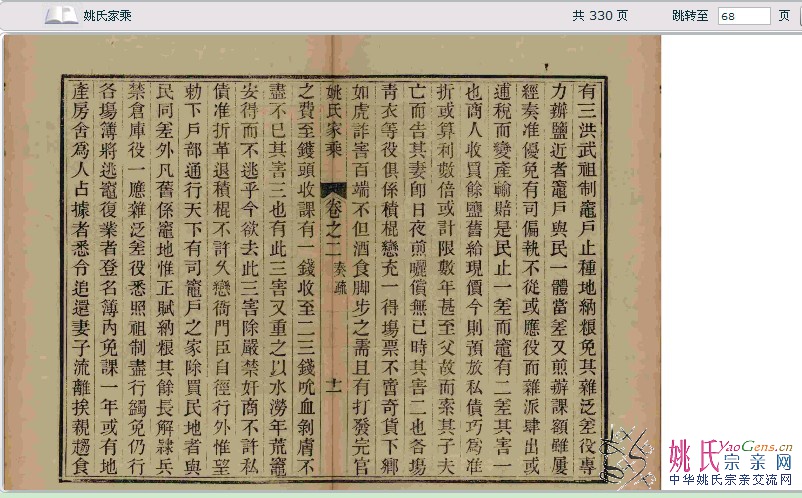 姚氏家乘
共 330 页
跳转至 68 页
有三洪武祖制竈戶止種地納粮免其雜泛差役專
力辦鹽近者竈戶與民一體當差又煎辦課額雖屢
經奏准優免有司偏執不從或應役而雜派肆出或
逋稅而變產輸賠是民止一差而竈有二差其害一
也商人收買餘鹽舊給現價今則預放私債巧為准
折或算利數倍或計限數年甚至父故而索其子夫
亡而告其妻即日夜煎曬償無已時其害二也各場
青衣等役俱係積棍戀充一得場票不啻奇貨下鄉
如虎詐害百端不但酒食脚步之需且有打發完官
姚氏家乘 卷之二 奏疏 十一
之費至錢頭收課有一錢收至二三錢吮血剝膚不
盡不已其害三也有此三害又重之以水澇年荒竈
安得而不逃乎今欲去此三害除嚴禁奸商不許私
債准折革退積棍不許久戀衙門臣自徑行外惟望
勅下戶部通行天下有司竈戶之家除買民地者與
民同差外凡舊係竈地惟正賦納粮其餘長解隷兵
禁倉庫役一應雜泛差役悉照祖制盡行蠲免仍行
各場簿將逃竈復業者登名簿內免課一年或有地
產房舍為人占據者悉令追還妻子流離挨親趨食
姚氏宗亲网
YaoGens.cn
中华姚氏宗亲交流网